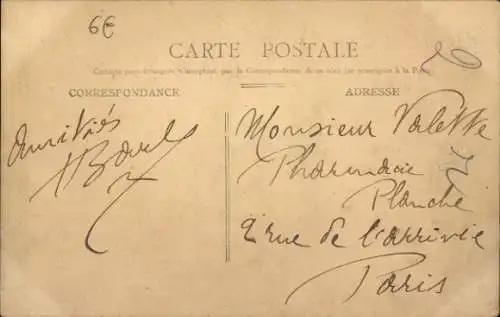 6€
CARTE POSTALE
CORRESPONDANCE
ADRESSE
Amitiés
Monsieur Valette
Pharmacie
Planche
2 rue de l'arrivée
Paris